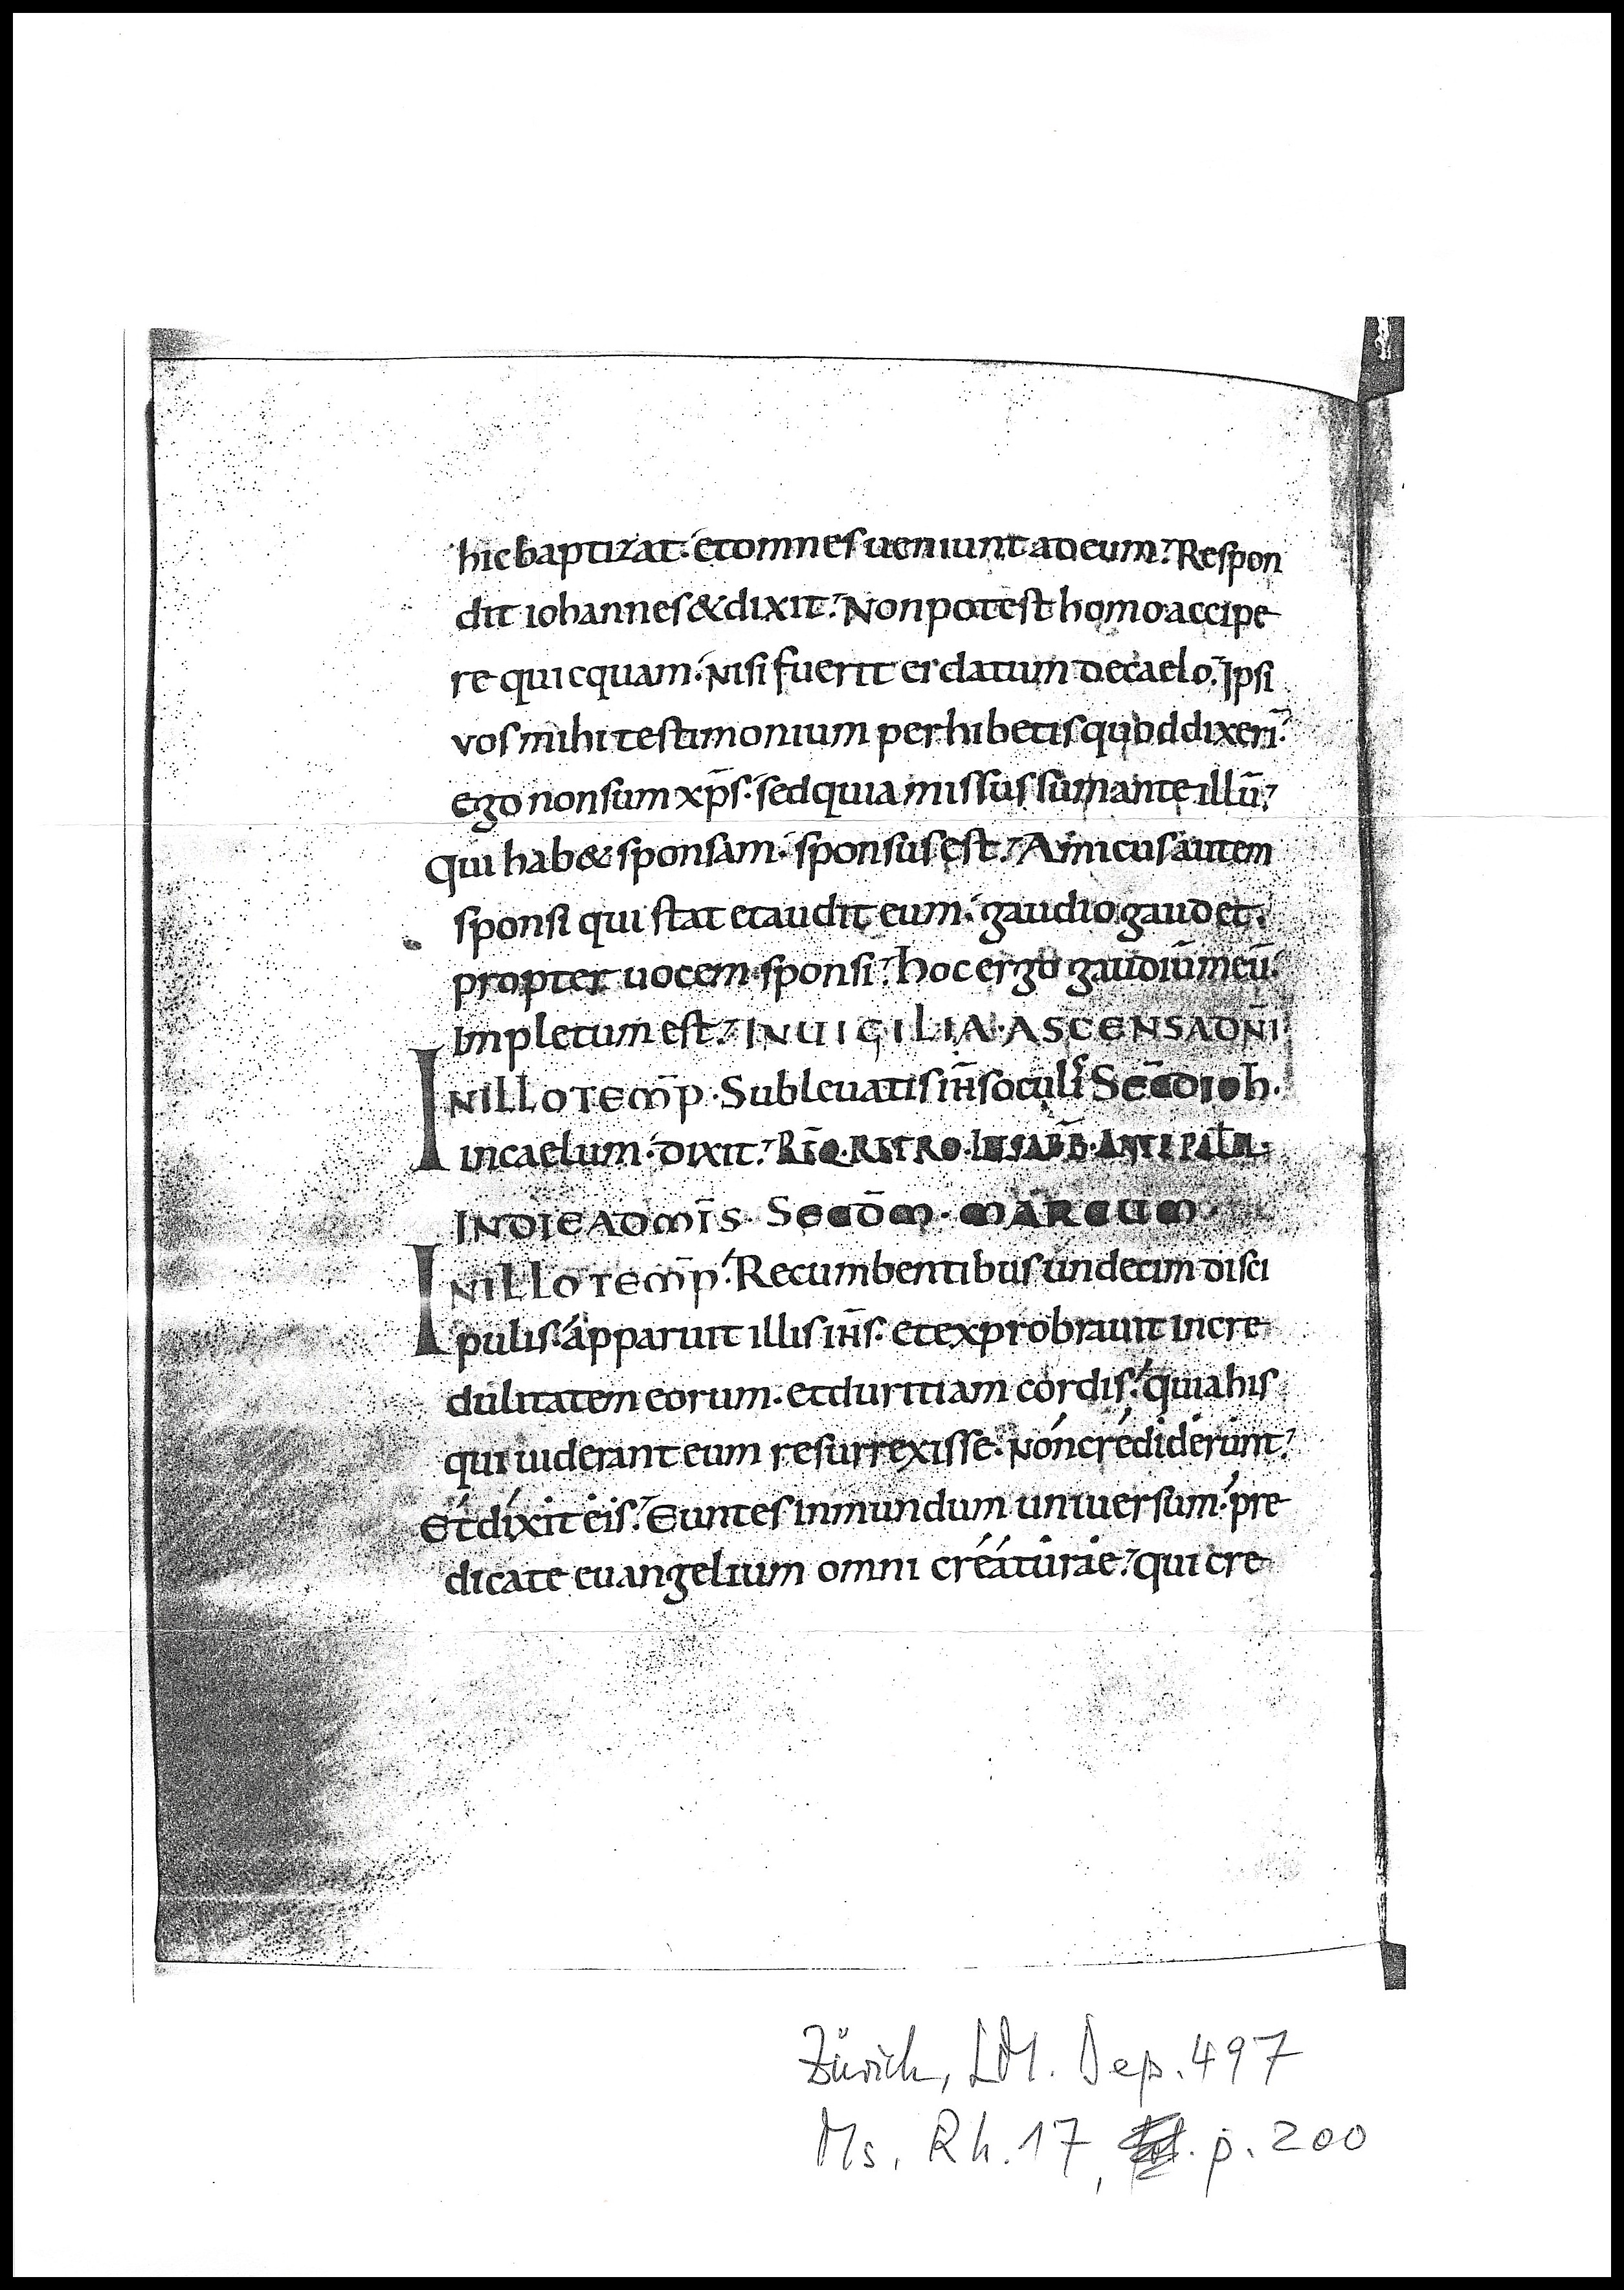 hic baptizat· et omnes ueniunt ad eum. Respon
dit iohannes & dixit. Non potest homo accipe
re quicquam· nisi fuerit ei datum de caelo. Ipsi
vos mihi testimonium perhibetis quod dixeri̅
ego non sum xp̅s· sed quia missus sum ante illu̅.
Qui hab& sponsam· sponsus est. Amicus autem
sponsi qui stat et audit eum· gaudio gaudet·
propter uocem sponsi. hoc ergo gaudiu̅ meu̅
impletum est. IN UIGILIA· ASCENSA DN̅I
IN ILLO TEMP̅· Subleuatis ih̅s oculis SEC̅D IOH·
in caelum· dixit. REQ̅· RETRO· IN SABB̅· ANTE PALM·
IN DIE AD MIS̅· SECD̅M· MARCUM·
IN ILLO TEMP̅· Recumbentibus undecim disci
pulis· apparuit illis ih̅s· et exprobrauit incre
dulitatem eorum· et duritiam cordis· quia his
qui uiderant eum resurrexisse· non crediderunt.
Et dixit eis. Euntes in mundum uniuersum· pre
dicate euangelium omni creaturae. qui cre
Zürich, LM. Dep. 497
Ms. Rh. 17, p. 200